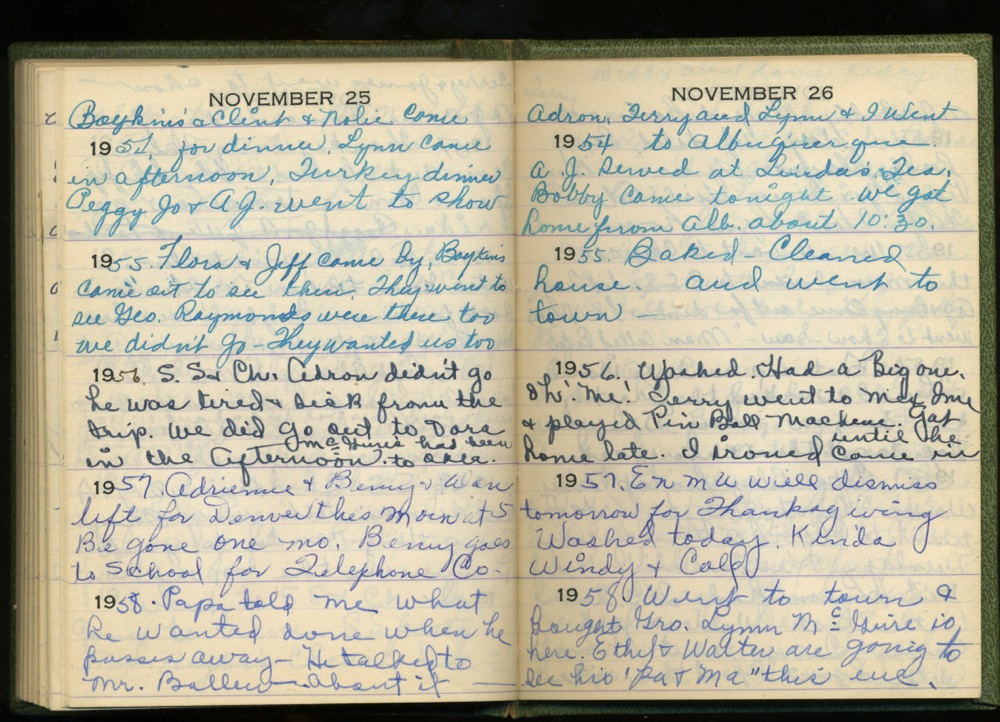 NOVEMBER 25
Boykin's & Clint & Nolie Come
1954, for dinner, Lynn came
in afternoon, Turkey dinner
Peggy Jo & A.J. went to show
1955. Flora & Jeff came by, Boykins
came out to see them. They went to
see Geo. Raymonds were there too
we didn't go - They wanted us too
1956. S. S. & Ch. Adron didn't go
he was tired & sick from the
trip. We did go out to Dora
in the Afternoon. McGuire had been to Okla.
1957. Adrienne & Benny & Alan
left for Denver this morn at 5
Be gone one mo. Benny goes
to School for Telephone Co-
1958. Papa told me what
he wanted done when he
passes away - He talked to
Mr. Ballew - About it -
NOVEMBER 26
Adron, Terry and Lynn & I Went
1954 to Albuqirer que
A. J. Served at Linda's Tea.
Bobby Came tonight we got
home from Alb. about 10:30.
1955. Baked - Cleaned
house. and went to
town -
1956. Washed. Had a Big one.
Oh! Me! Terry went to
& played Pin Ball Machene. Got
home late. I ironed until he came in
1957. E N M U will dismiss
tomorrow for Thanksgiving
Washed today. Kinda
Windy & Cold
1958 Went to town &
Bought Gro. Lynn McGuire is
here. Ethel & Walter are going to
see his "Pa & Ma" this eve.